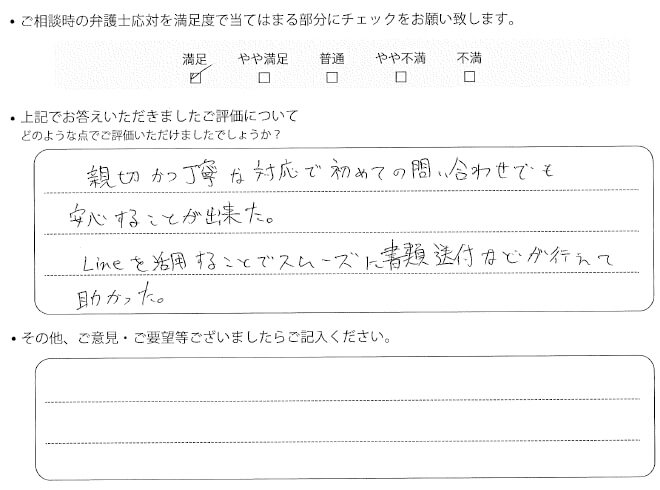 ・ご相談時の弁護士応対を満足度で当てはまる部分にチェックをお願い致します。
満足 やや満足 普通 やや不満 不満
☑ □ □ □ □
・上記でお答えいただきましたご評価について
どのような点でご評価いただけましたでしょうか?
親切かつ丁寧な対応で初めての問い合わせでも
安心することが出来た。
Lineを活用することでスムーズに書類送付などが行えて
助かった。
・その他、ご意見・ご要望等ございましたらご記入ください。